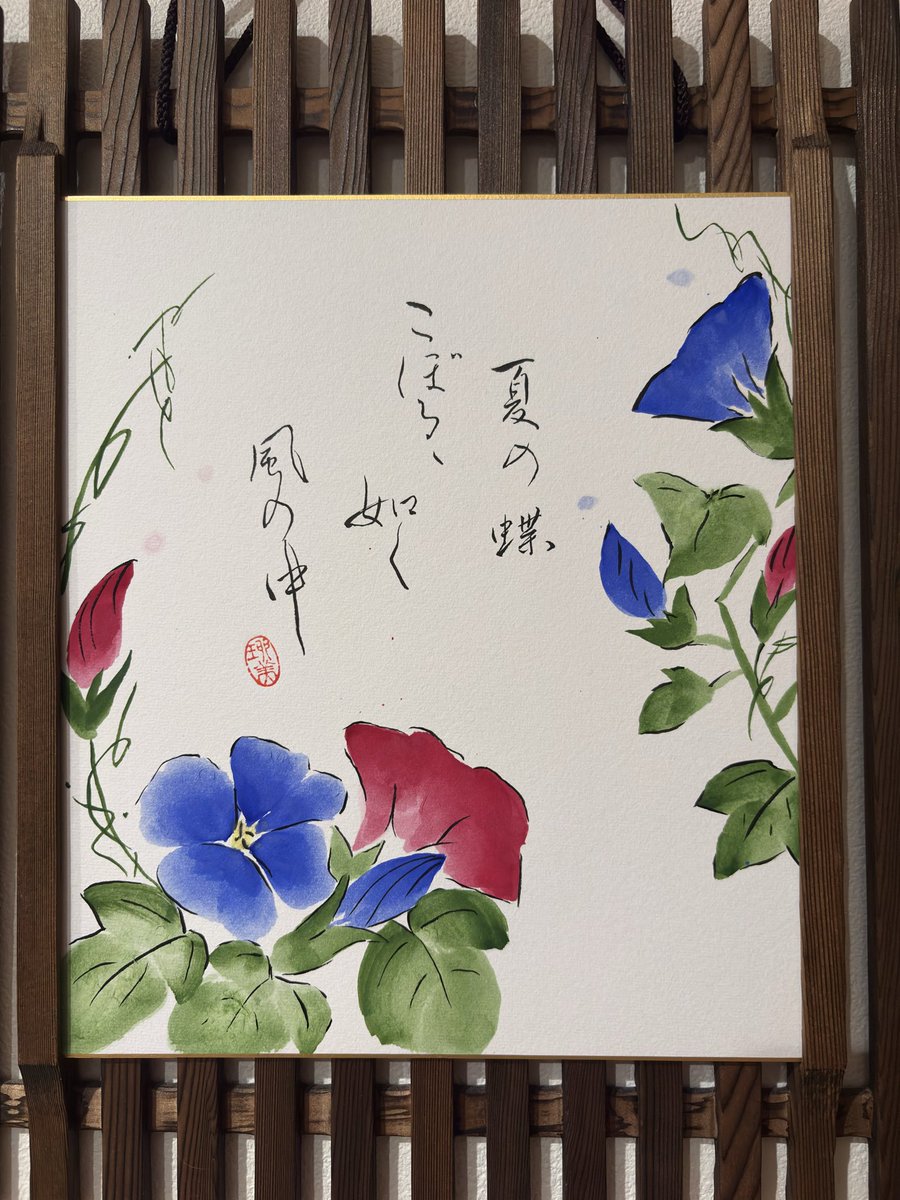 夏の蝶
こぼるゝ如く
風の中